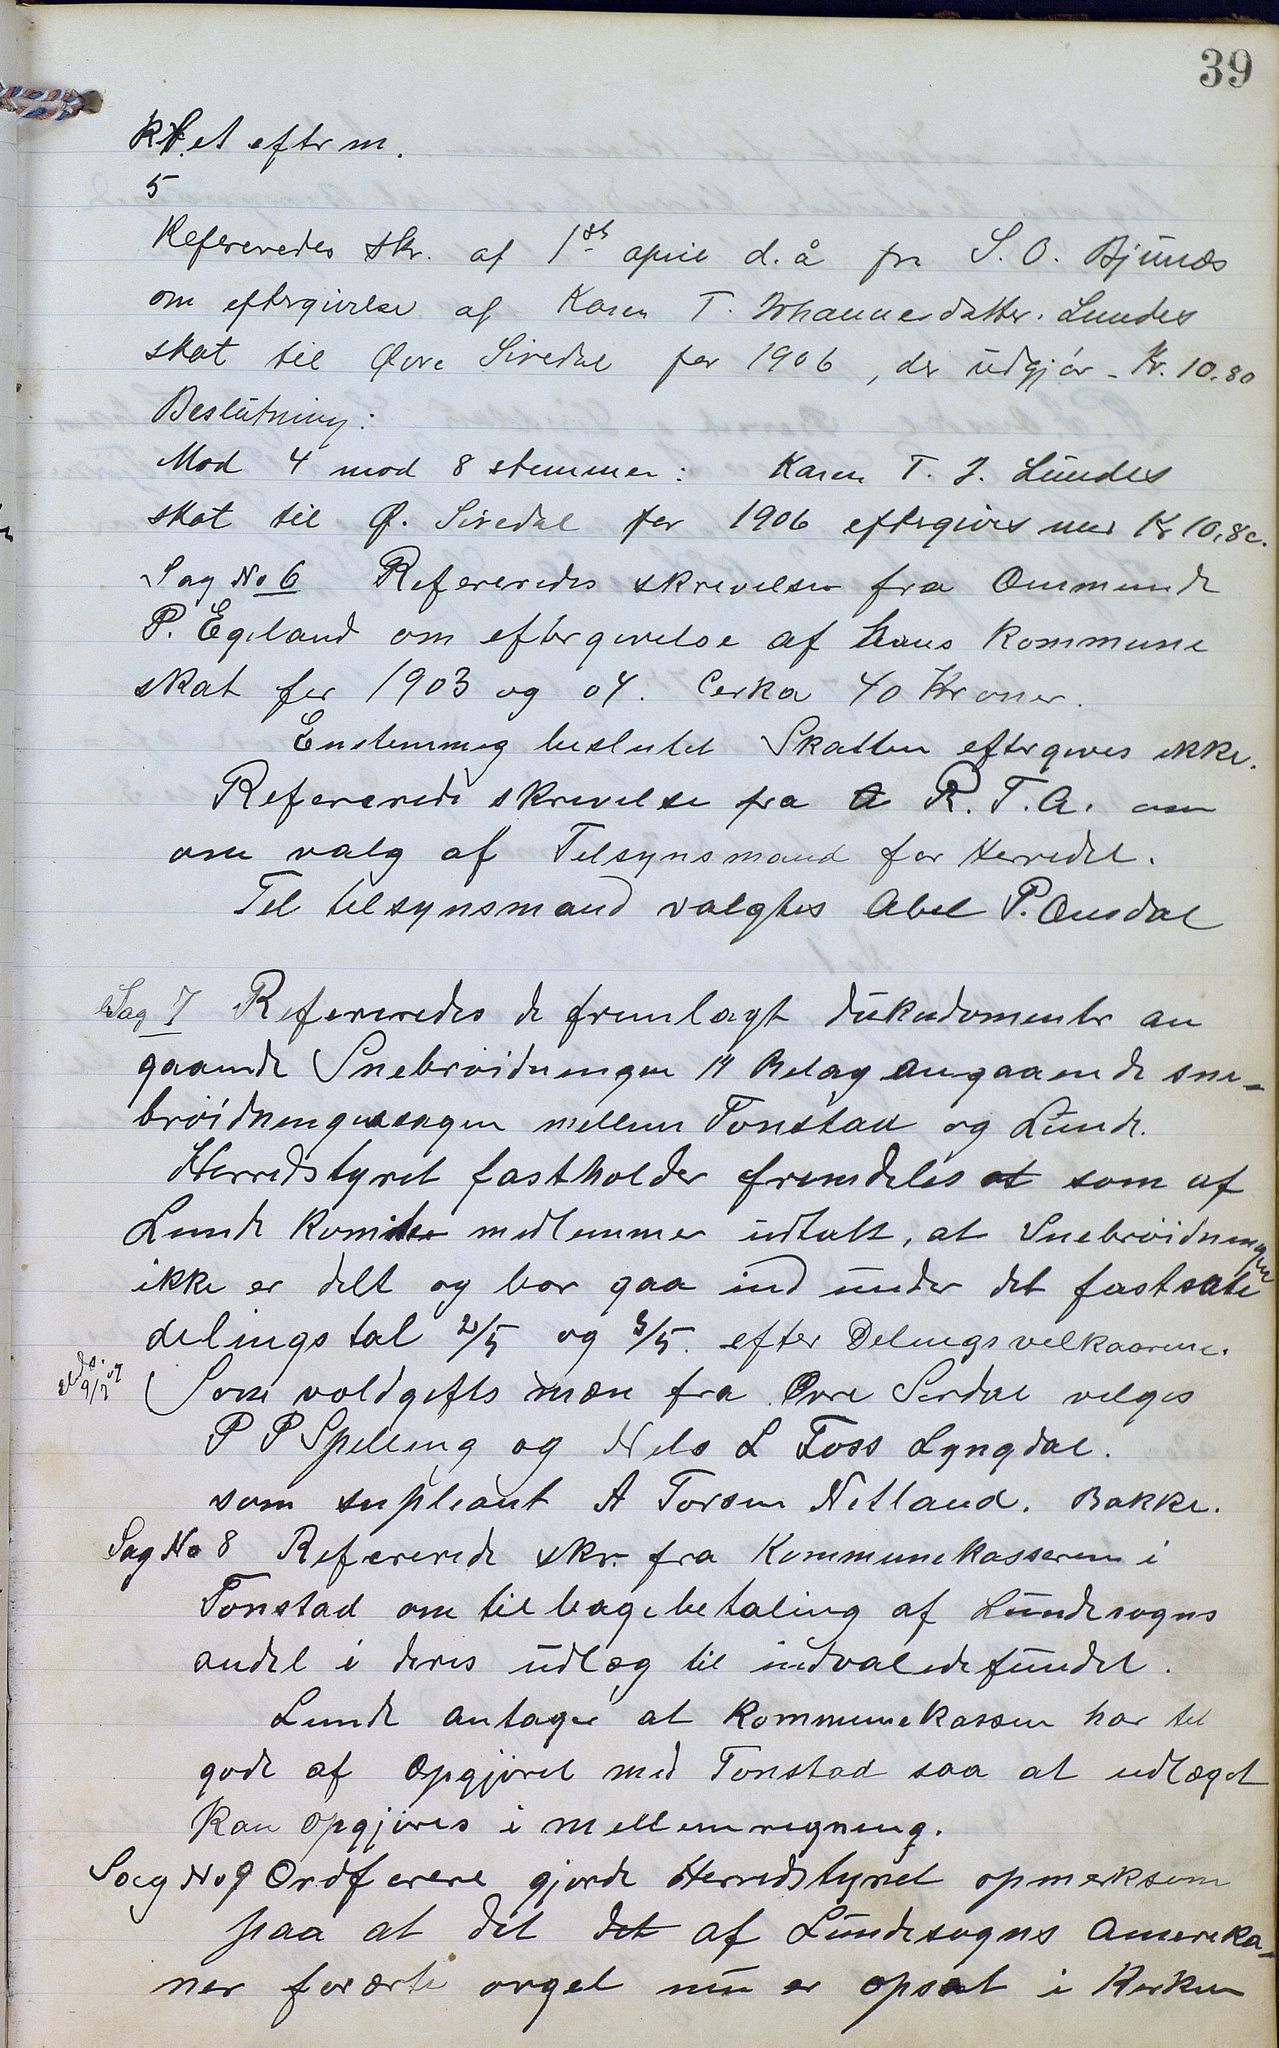 39
Kl. et eftrm.
5
Refereredes skr. af 1ste april d. å fra S. O. Bjunes
om eftergivelse af Karen T. Johannesdatter. Lundes
skat til Øvre Siredal for 1906, der udgjör - Kr. 10.80
Beslutning:
Mod 4 mod 8 stemmer: Karen T. J. Lundes
skat til Ø. Siredal for 1906 eftergives med Kr 10,80.
Sag No 6 Refereredes skrivelse fra Ommund
P. Egeland om eftergivelse af hans kommune
skat for 1903 og 04. Cerka 40 Kroner.
Enstemmig beslutet Skatten eftergives ikke.
Refererede skrivelse fra R. T. A. om
om valg af Tilsynsmand for Herredet.
Til tilsynsmand valgtes Abel P. Ousdal
Sag 7 Refereredes de fremlagt dukudomenter an
gaaende Snebröidningen 14 Belag angaaende sne-
bröidningssagen mellem Tonstad og Lunde.
Herredstyret fastholder fremdeles at som af
Lunde komite medlemmer udtalt, at Snebröidningen
ikke er delt og bor gaa ind under det fastsate
delingstal 2/5 og 3/5. efter Delingsvelkaarene.
Uds. 9/7 07
Som voldgifts mæn fra Øvre Serdal velges
P P Speleng og Nels L Foss Lyngdal.
som supleant A Torsen Netland. Bakke.
Sag No 8 Refererede skr. fra Kommunekasseren i
Tonstad om tilbagebetaling af Lundesogns
andel i deres udlæg til indvalidefundet.
Lunde antager at kommunekassen har til
gode af opgjöret med Tonstad saa at udlæget
kan opgjöres i mellemregning.
Sag No 9 Ordferere gjorde Herredstyret opmerksom
paa at det det af Lundesogns Amerika-
ner forærte orgel nu er opsat i Kerken